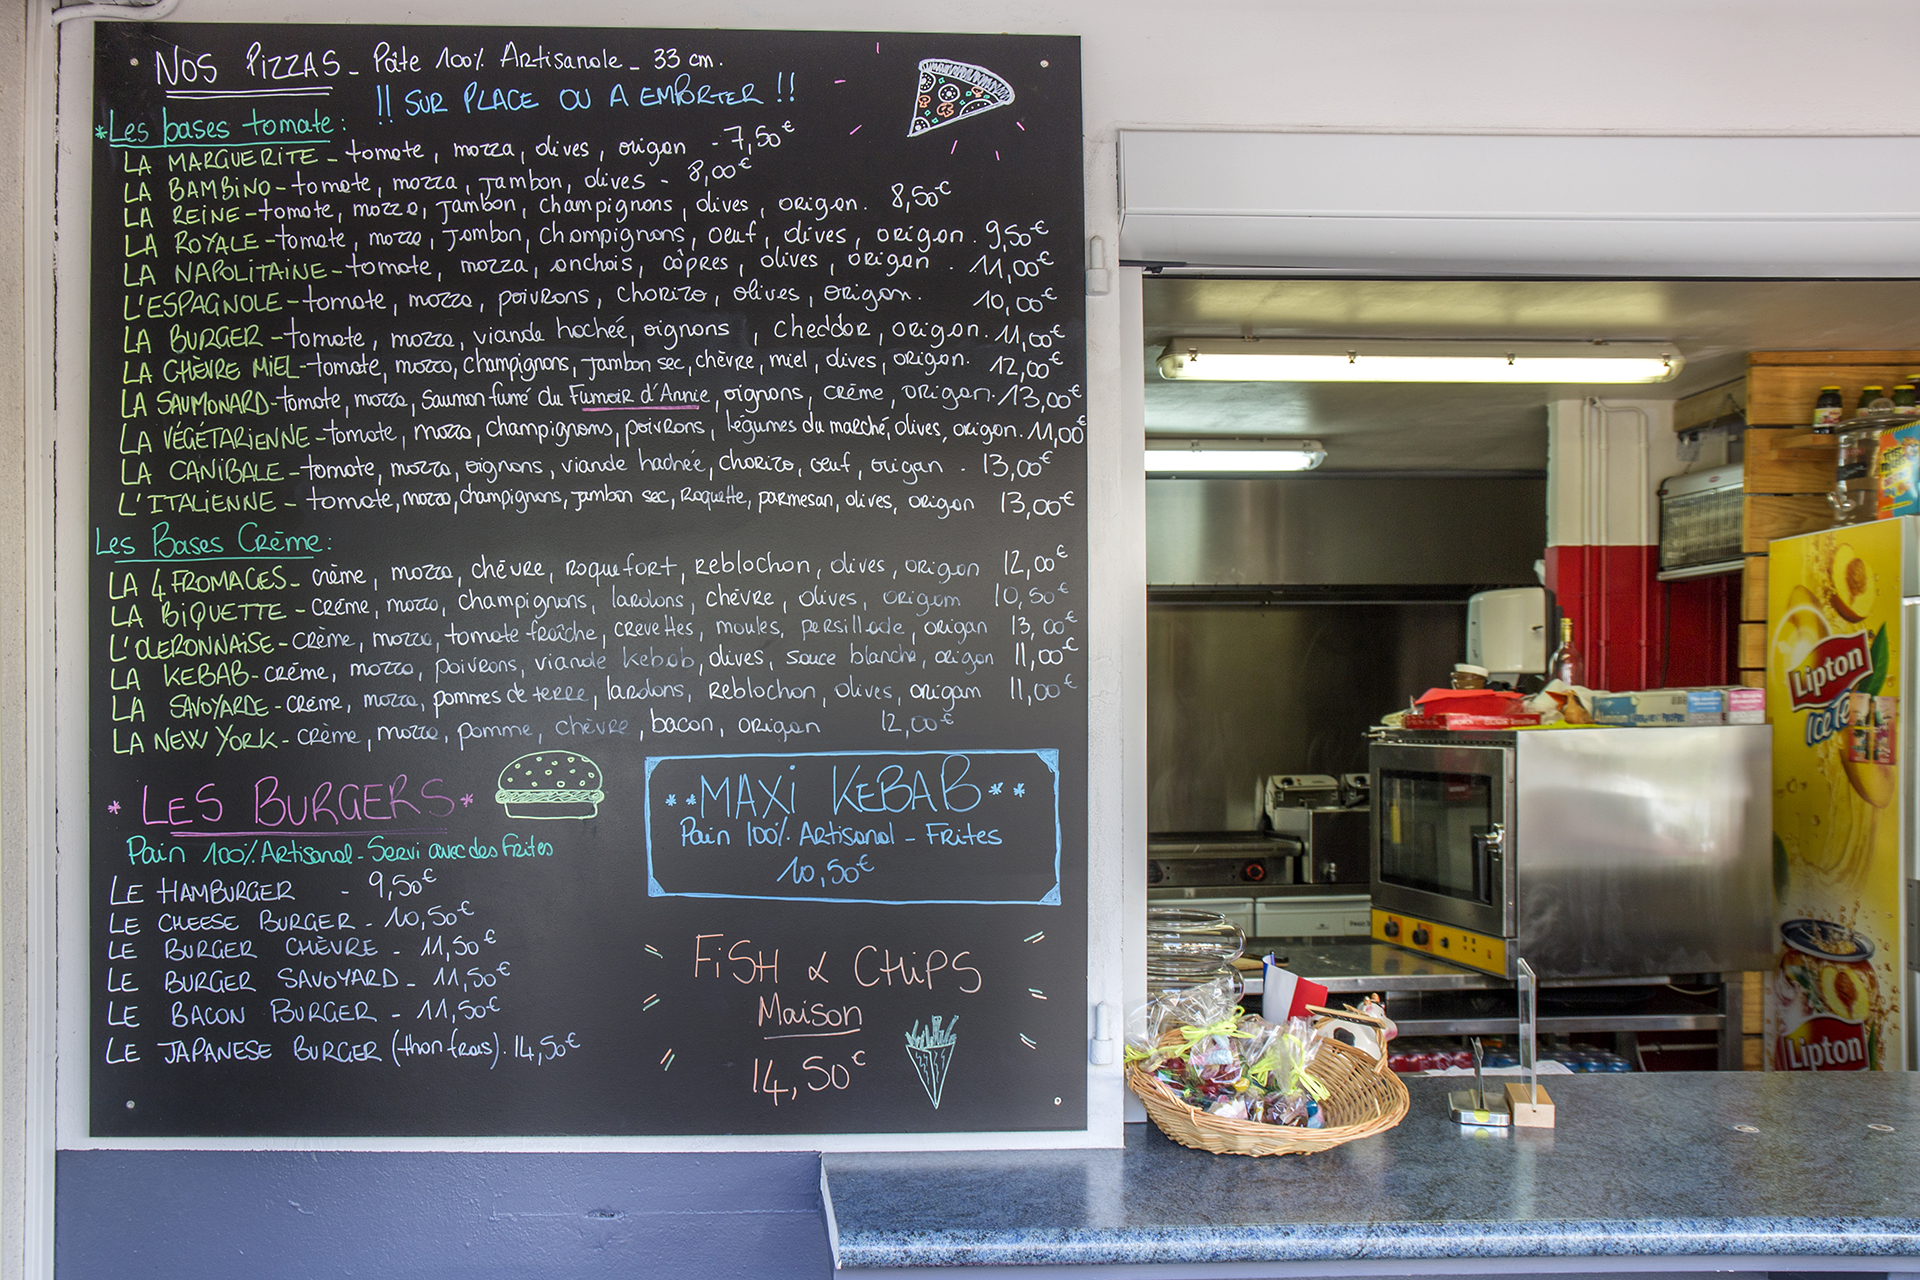 NOS PIZZAS - Pâte 100% Artisanale - 33 cm.
!! SUR PLACE OU A EMPORTER !!
*Les bases tomate :
LA MARGUERITE - tomate, mozza, olives, origan - 7,50€
LA BAMBINO - tomate, mozza, jambon, olives - 8,00€
LA REINE - tomate, mozza, jambon, champignons, olives, origan. 8,50€
LA ROYALE - tomate, mozza, jambon, champignons, oeuf, olives, origan. 9,50€
LA NAPOLITAINE - tomate, mozza, anchois, câpres, olives, origan. 11,00€
L'ESPAGNOLE - tomate, mozza, poivrons, chorizo, olives, origan. 10,00€
LA BURGER - tomate, mozza, viande hachée, oignons, cheddar, origan. 11,00€
LA CHÈVRE MIEL - tomate, mozza, champignons, jambon sec, chèvre, miel, olives, origan. 12,00€
LA SAUMONARD - tomate, mozza, saumon fumé du Fumoir d'Annie, oignons, crème, origan. 13,00€
LA VÉGÉTARIENNE - tomate, mozza, champignons, poivrons, légumes du marché, olives, origan. 11,00
LA CANIBALE - tomate, mozza, oignons, viande hachée, chorizo, oeuf, origan - 13,00€
L'ITALIENNE - tomate, mozza, champignons, jambon sec, roquette, parmesan, olives, origan 13,00€
Les Bases Crème :
LA 4 FROMAGES - crème, mozza, chèvre, roquefort, reblochon, olives, origan 12,00€
LA BIQUETTE - crème, mozza, champignons, lardons, chèvre, olives, origan 10,50€
L'OLERONNAISE - crème, mozza, tomate fraîche, crevettes, moules, persillade, origan 13,00€
LA KEBAB - crème, mozza, poivrons, viande kebab, olives, sauce blanche, origan 11,00€
LA SAVOYARDE - crème, mozza, pommes de terre, lardons, reblochon, olives, origan 11,00€
LA NEW YORK - crème, mozza, pomme, chèvre, bacon, origan 12,00€
* LES BURGERS *
Pain 100% Artisanal - Servi avec des frites
LE HAMBURGER - 9,50€
LE CHEESE BURGER - 10,50€
LE BURGER CHÈVRE - 11,50€
LE BURGER SAVOYARD - 11,50€
LE BACON BURGER - 11,50€
LE JAPANESE BURGER (thon frais). 14,50€
**MAXI KEBAB**
Pain 100% Artisanal - Frites
10,50€
FISH & CHIPS
Maison
14,50€
Lipton
Ice Te
Lipton